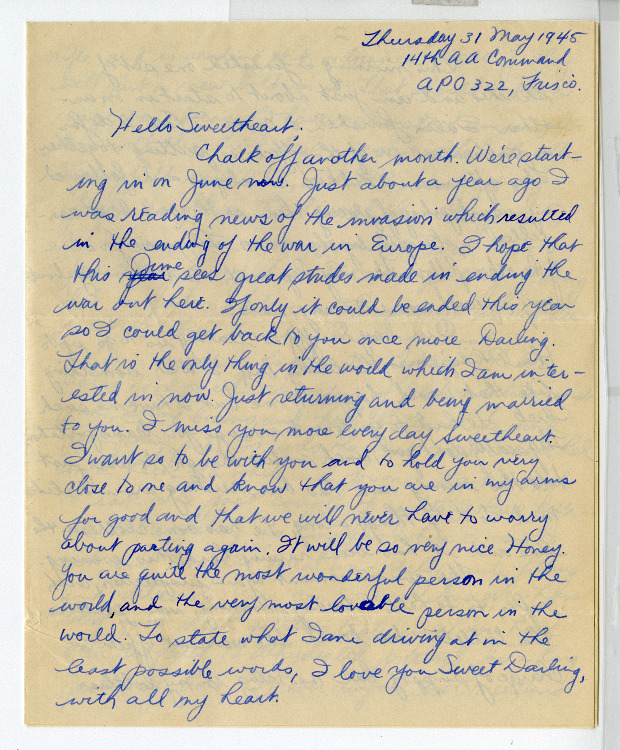 Thursday 31 May 1945
14th AA Command
APO 322, Frisco.
Hello Sweetheart,
Chalk off another month. We're start-
ing in on June now. Just about a year ago I
was reading news of the invasion which resulted
in the ending of the war in Europe. I hope that
this year June sees great strides made in ending the
war out here. If only it could be ended this year
so I could get back to you once more Darling.
That is the only thing in the world which I am inter-
ested in now. Just returning and being married
to you. I miss you more every day Sweetheart.
I want so to be with you and to hold you very
close to me and know that you are in my arms
for good and that we will never have to worry
about parting again. It will be so very nice Honey.
You are quite the most wonderful person in the
world, and the very most loveable person in the
world. To state what I am driving at in the
least possible words, I love you Sweet Darling,
with all my heart.